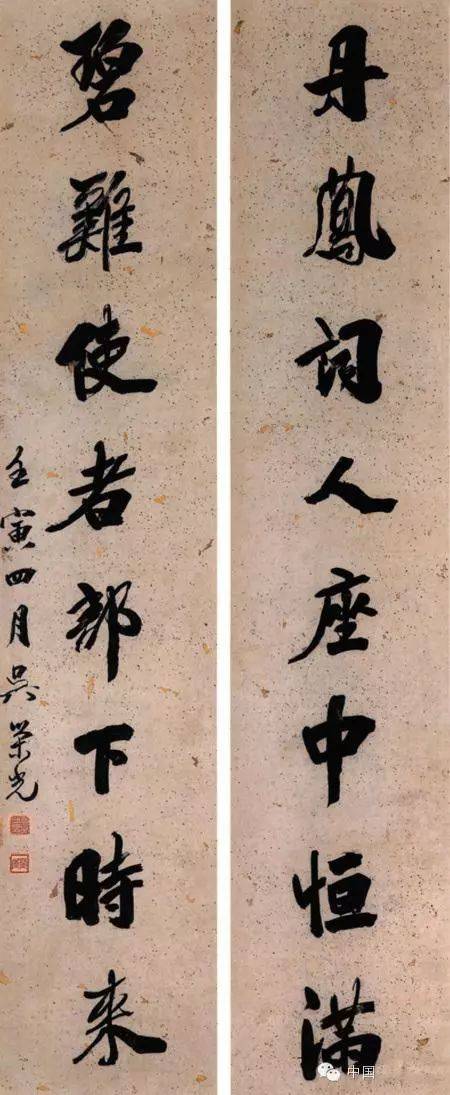 丹鳳詞人座中恒滿
碧雞使者部下時来
壬寅四月吳榮光
中国